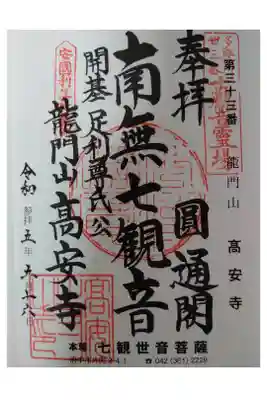 第三十三番 龍門山 高安寺
奉拝 圓通閣
南無七観音
開基 足利尊氏公
龍門山高安寺
令和 五年 九月 十六日
安國利生
本尊 七観世音菩薩
☎ 042 (361) 2228